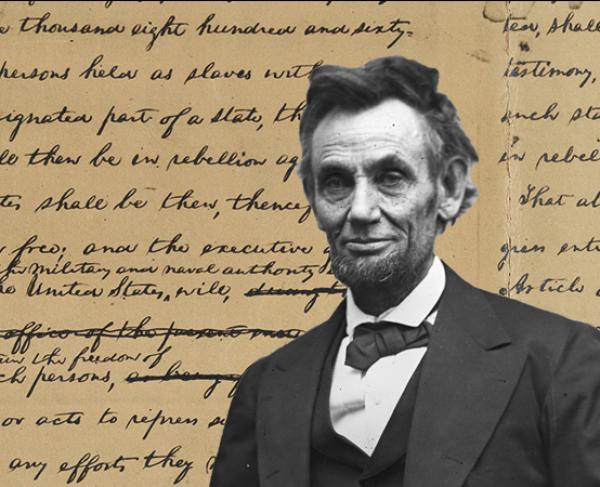 e thousand eight hundred and sixty-
persons held as slaves with
signated part of a State, th
then be in rebellion ag
shall be then, thencef
free; and the executive
the military and naval authority
United States, will, during
office of the present
the freedom of
ch persons, as being
or acts to repress
any efforts they
shall
testimony,
such sta
in rebel
That
gress enti
Article